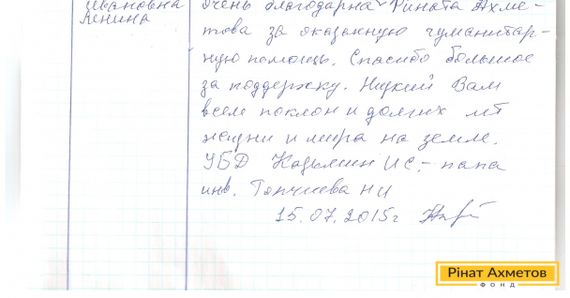 Ивановна
Ленина
очень благодарна Рината Ахме-
това за оказанную гуманитар-
ную помощь. Спасибо большое
за поддержку. Низкий Вам
всем поклон и долгих лет
жизни и мира на земле.
УБД И.С. – папа
инв. Топчиева НИ
15.07.2015г
Рінат Ахметов
ФОНД